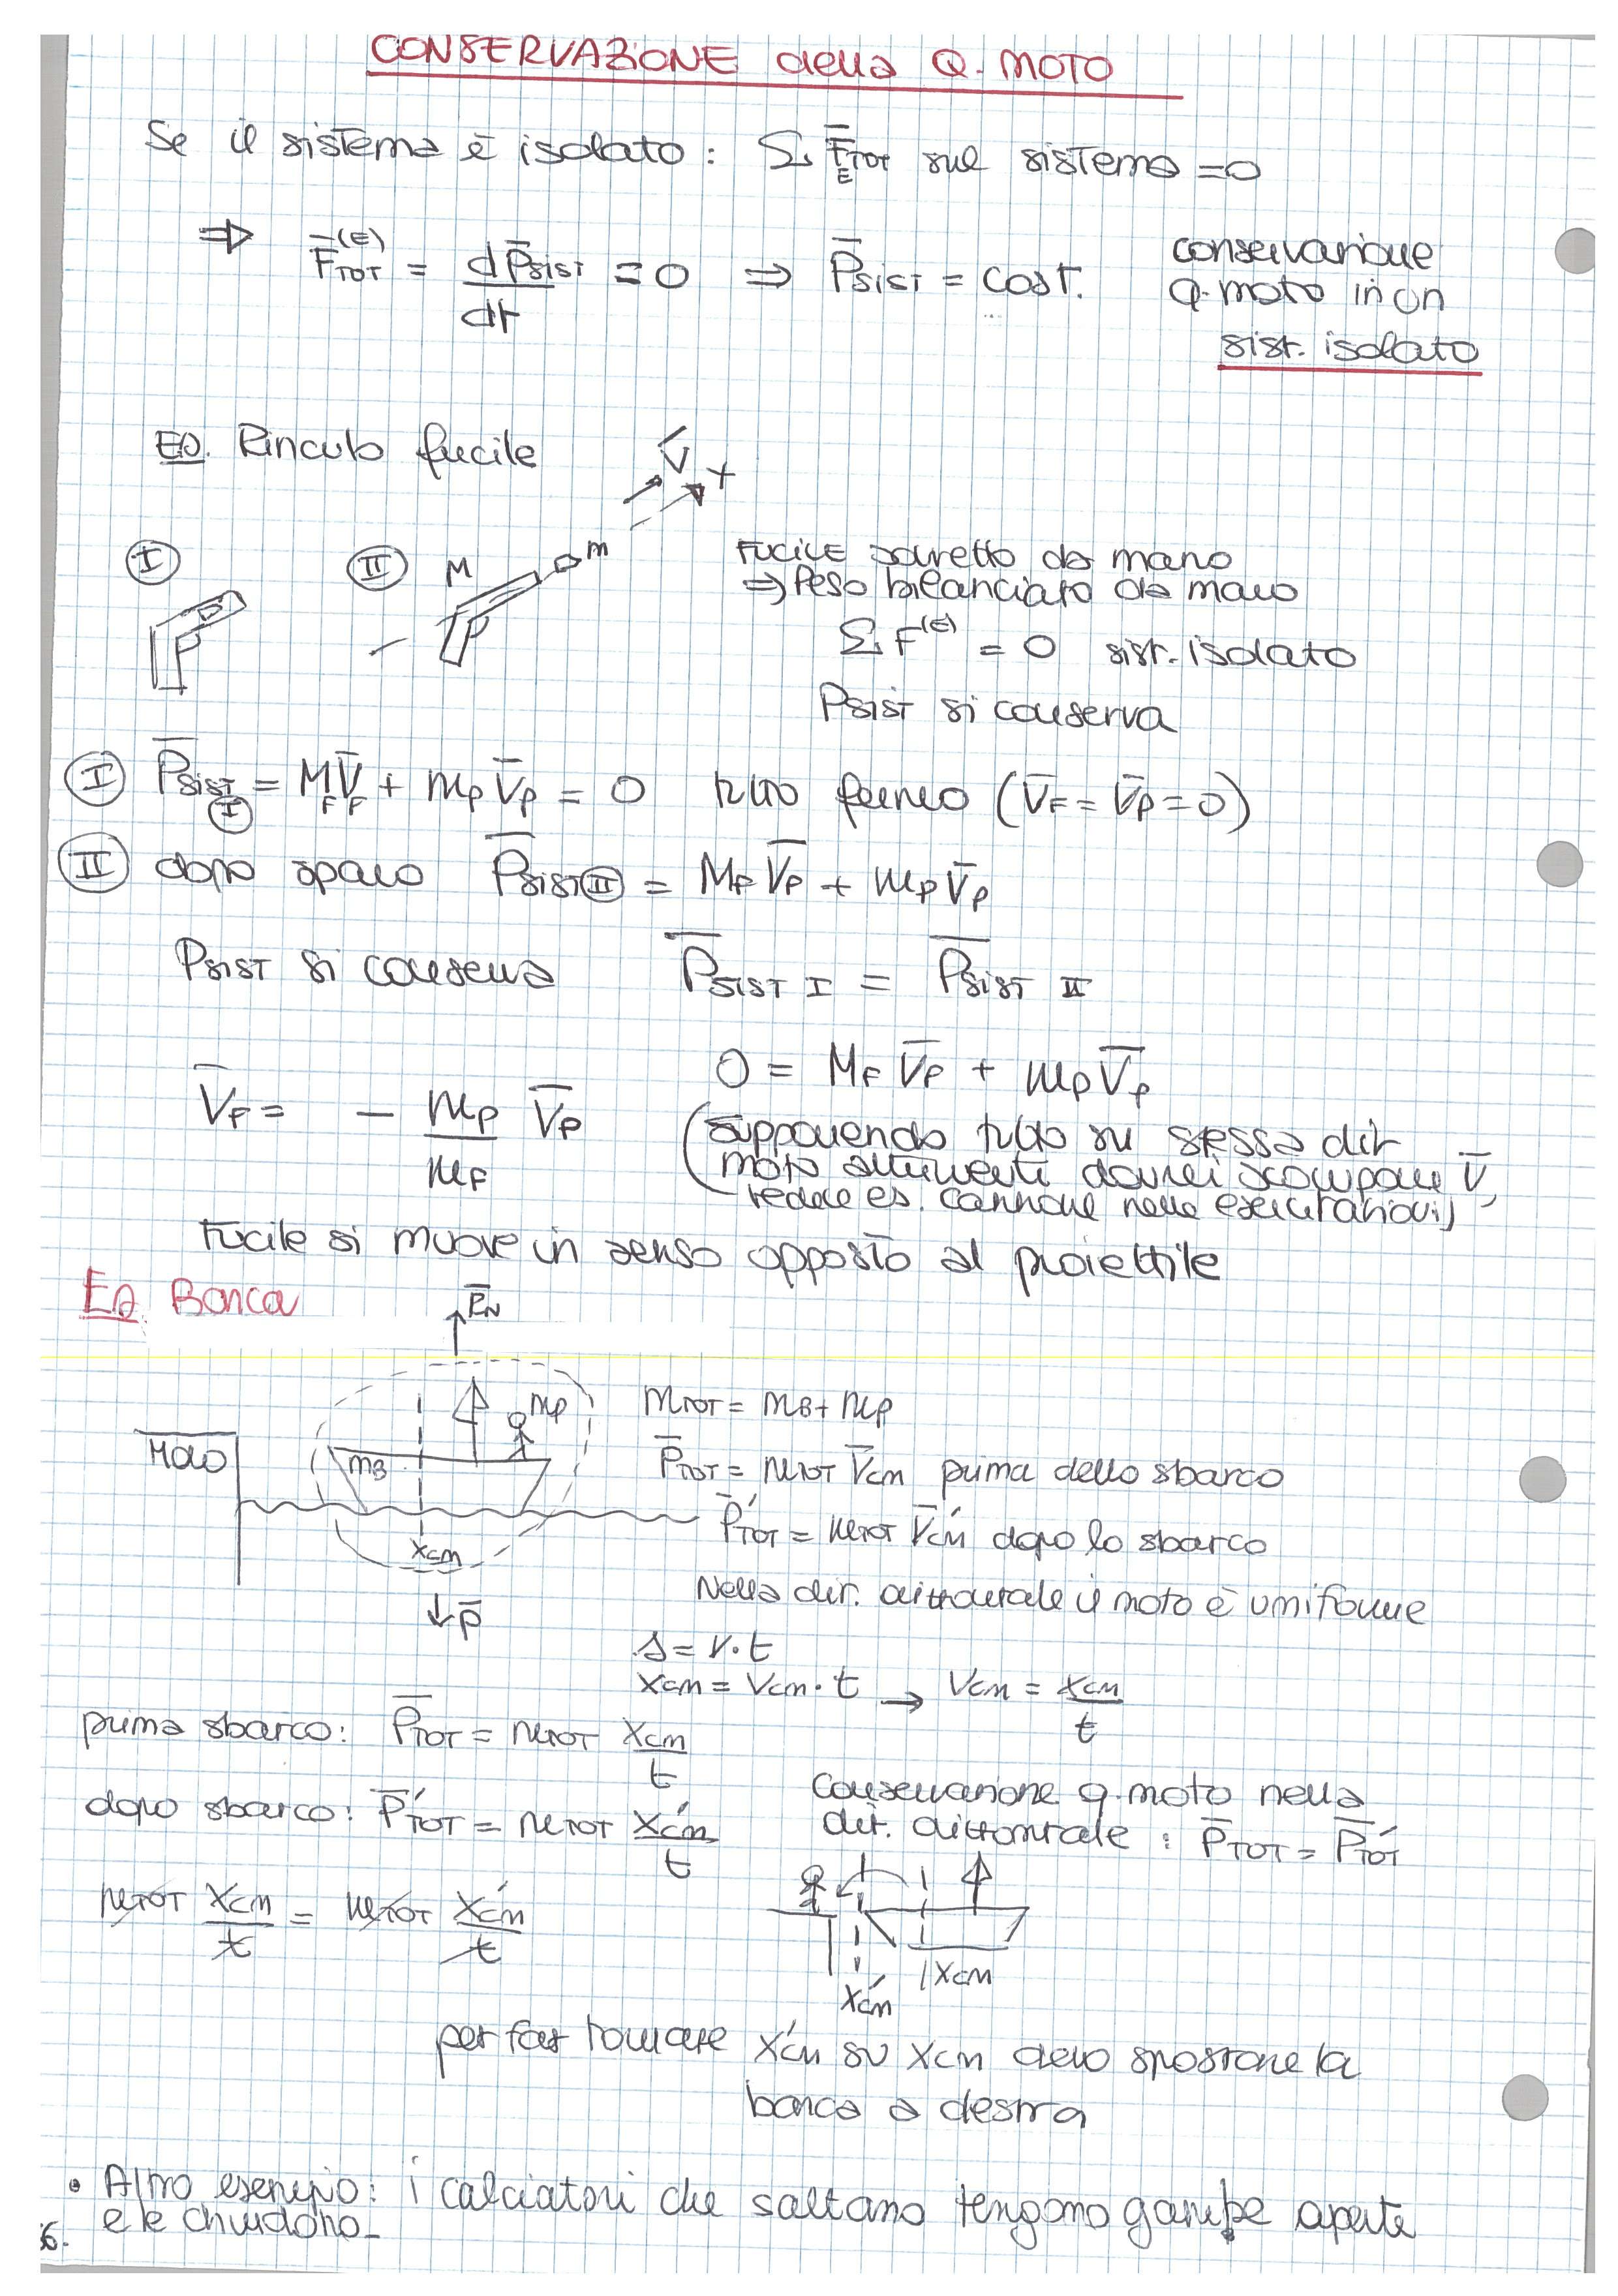 CONSERVAZIONE della Q. MOTO
Se il sistema è isolato: Σ F̄TOT E sul sistema = 0
⇒ F̄TOT(E) = dP̄SIST/dt = 0 ⇒ P̄SIST = COST.
conservazione
q. moto in un
sist. isolato
ES. Rinculo fucile
V̄ x
I
II M m
FUCILE sorretto da mano
⇒ Peso bilanciato da mano
Σ F(E) = 0 sist. isolato
PSIST si conserva
I P̄SIST I = MF V̄F + mP V̄P = 0 tutto fermo (V̄F = V̄P = 0)
II dopo sparo P̄SIST II = MF V̄F + mP V̄P
PSIST si conserva P̄SIST I = P̄SIST II
0 = MF V̄F + mP V̄P
V̄F = - mP/mF V̄P
(supponendo tutto su stessa dir
moto altrimenti dovrei scomporre V̄,
vedere es. cannone nelle esercitazioni)
Fucile si muove in senso opposto al proiettile
ES. Barca
F̄N
Molo
mB
mP
xCM
↓ P̄
mTOT = mB + mP
P̄TOT = mTOT V̄CM prima dello sbarco
P̄'TOT = mTOT V̄'CM dopo lo sbarco
Nella dir. orizzontale il moto è uniforme
s = v·t
xCM = VCM · t → VCM = xCM/t
prima sbarco: P̄TOT = mTOT xCM/t
dopo sbarco: P̄'TOT = mTOT x'CM/t
Conservazione q. moto nella
dir. orizzontale : P̄TOT = P̄'TOT
mTOT xCM/t = mTOT x'CM/t
xCM
x'CM
per far tornare x'CM su xCM devo spostare la
barca a destra
• Altro esempio: i calciatori che saltano tengono gambe aperte
e le chiudono_
6.